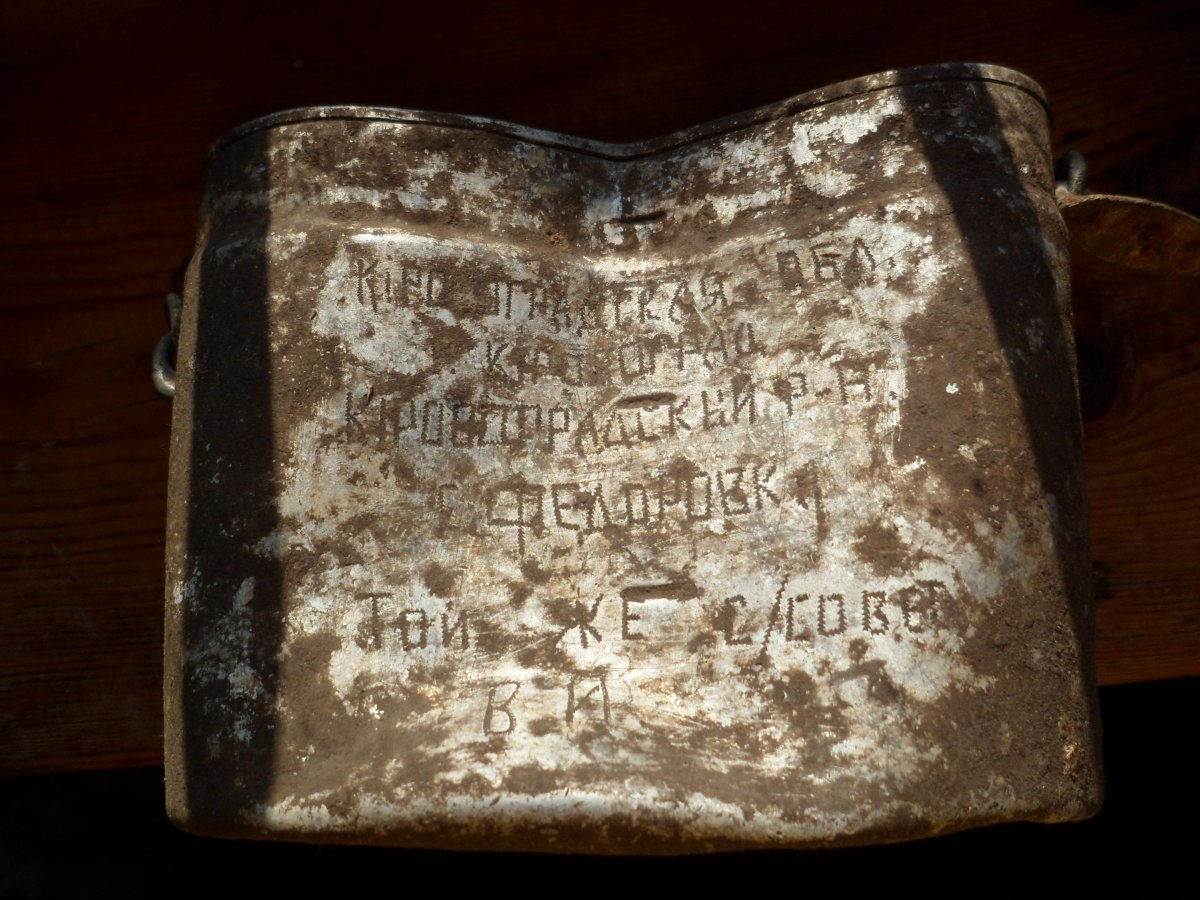 КІРОВОГРАДСКАЯ ОБЛ.
КІРОВОГРАД
КІРОВОГРАДСКЫЙ Р-Н.
С. ФЕДОРОВКА
ТОЙ ЖЕ С/СОВЕТ
В И